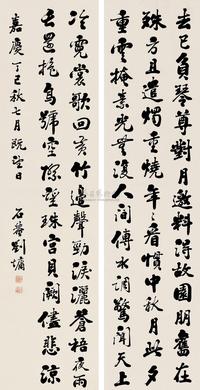 去已負琴尊對月邀料得故園朋舊在
殊方且遣燭重燒年年看慣中秋月此夕
重雲掩素光無復人間傳水調驚聞天上
冷霓裳歌回哀竹邊聲勁淚灑蒼梧夜雨
去遺抱烏號空際望珠宮貝闕儘悲涼
嘉慶丁巳秋七月既望日
石菴劉墉